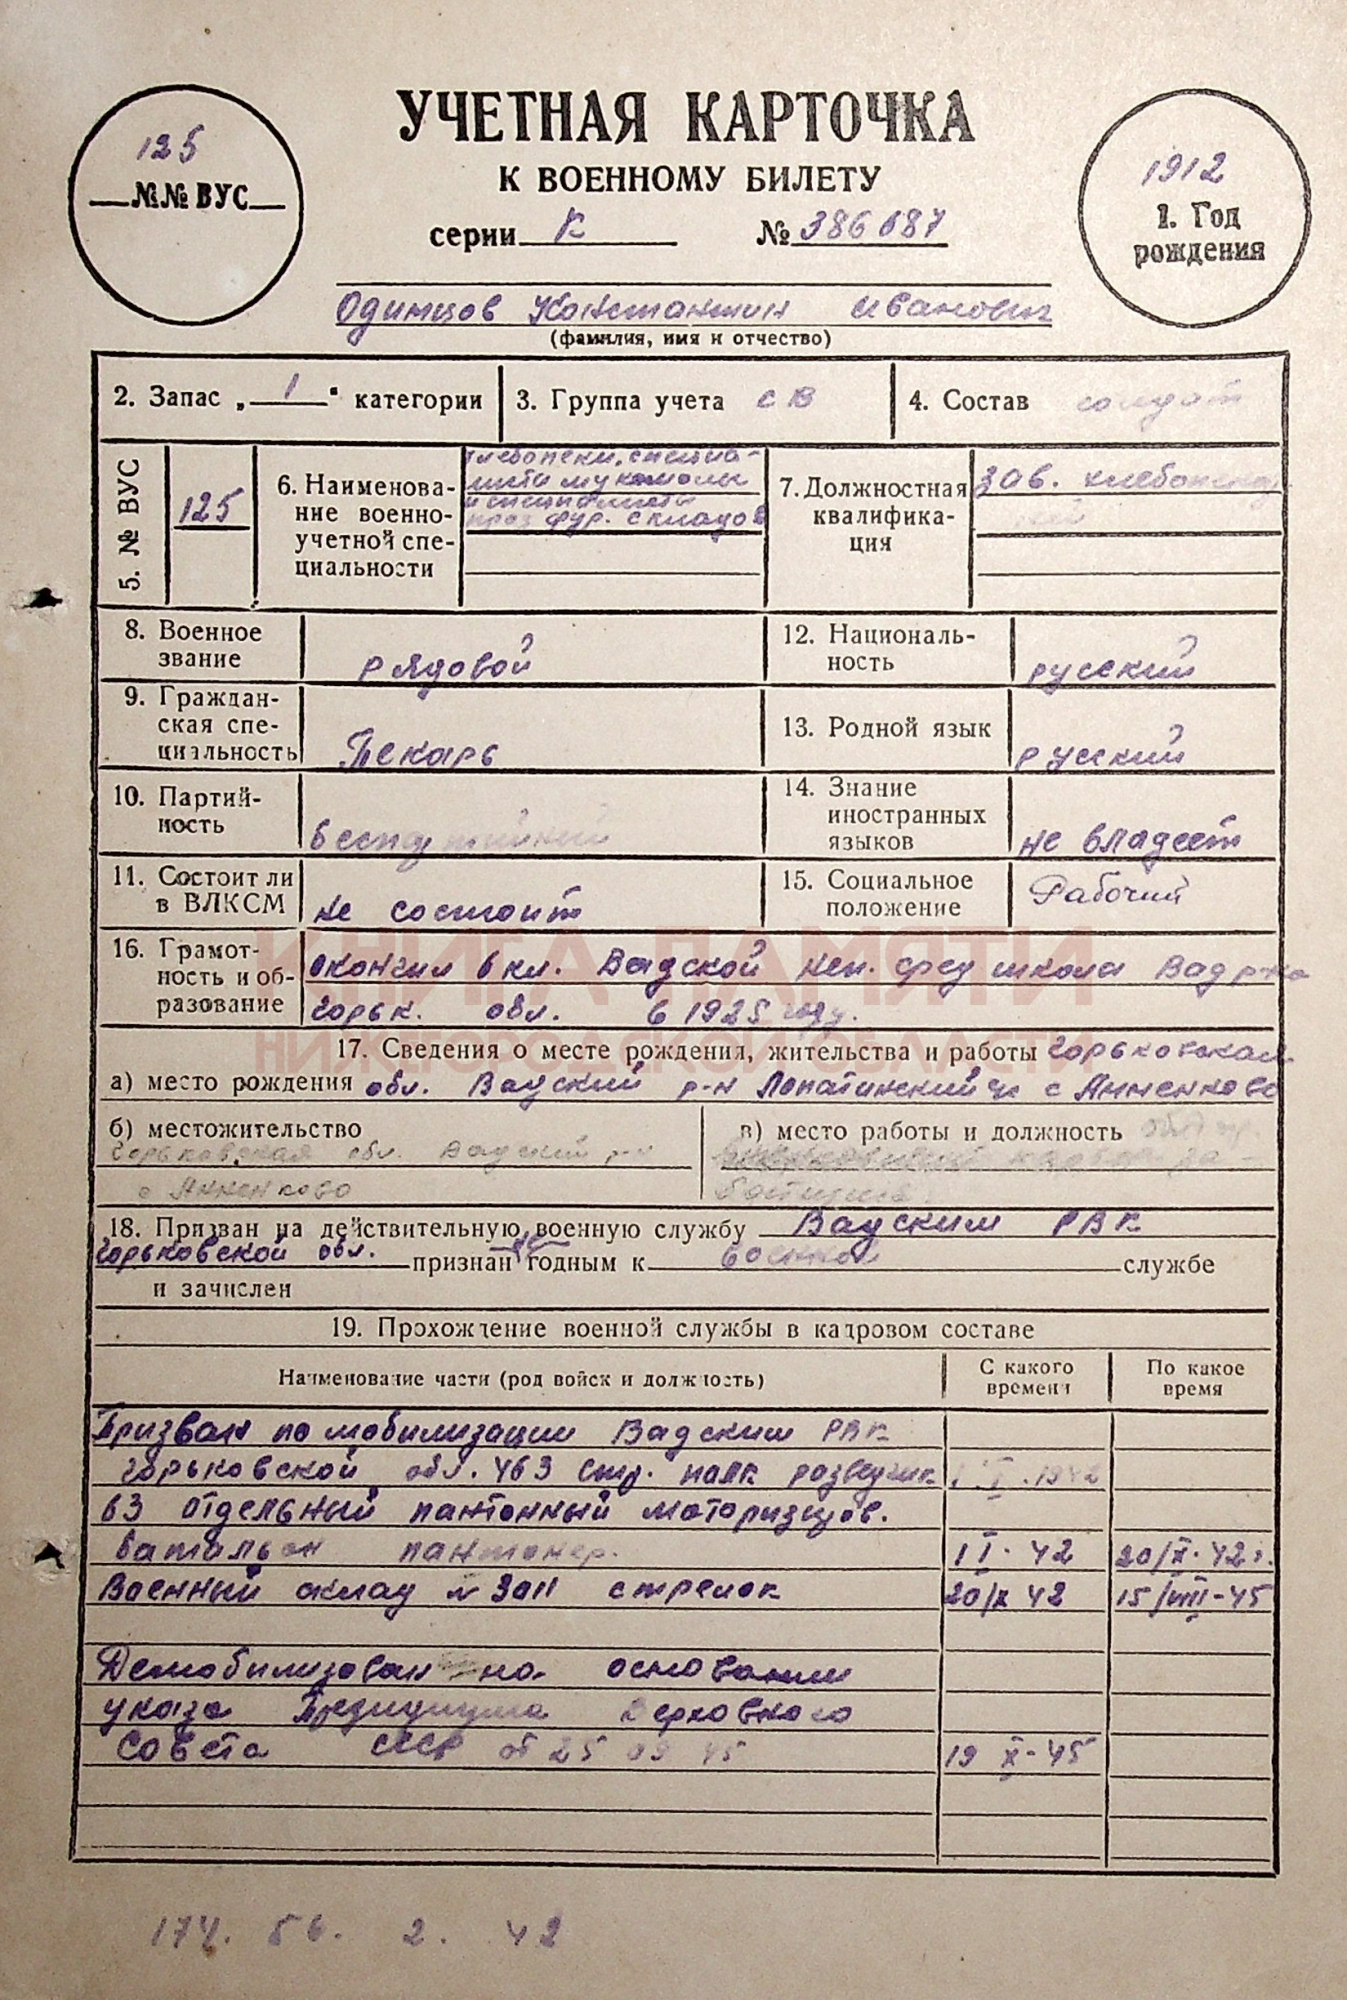 УЧЕТНАЯ КАРТОЧКА
К ВОЕННОМУ БИЛЕТУ
серии К № 386687
125
№№ ВУС
1912
1. Год
рождения
Одинцов Константин Иванович
(фамилия, имя и отчество)
2. Запас „ 1 " категории
3. Группа учета СВ
4. Состав солдат
5. № ВУС
125
6. Наименова-
ние военно-
учетной спе-
циальности
хлебопеки, специа-
листы мукомолы
и специалисты
прод фур. складов
7. Должностная
квалифика-
ция
зав. хлебопекар
ней
8. Военное
звание
рядовой
12. Националь-
ность
русский
9. Граждан-
ская спе-
циальность
Пекарь
13. Родной язык
русский
10. Партий-
ность
беспартийный
14. Знание
иностранных
языков
не владеет
11. Состоит ли
в ВЛКСМ
не состоит
15. Социальное
положение
Рабочий
16. Грамот-
ность и об-
разование
окончил 6 кл. Вадской неп. сред школа Вад р-на
Горьк. обл. в 1925 году.
КНИГА ПАМЯТИ
НИЖЕГОРОДСКОЙ ОБЛАСТИ
17. Сведения о месте рождения, жительства и работы Горьковская
а) место рождения обл. Вадский р-н Лопатинский с Анненково
б) местожительство
Горьковская обл. Вадский р-н
с Анненково
в) место работы и должность
18. Призван на действительную военную службу Вадским РВК
Горьковской обл. признан годным к военной службе
и зачислен
19. Прохождение военной службы в кадровом составе
Наименование части (род войск и должность)
С какого
времени
По какое
время
Призван по мобилизации Вадским РВК
Горьковской обл. 463 стр. полк разведчик 1942
63 отдельный пантонный моторизцов.
батальон пантонер. 1 I. 42 20/X. 42 г.
Военный склад № 3011 стрелок 20/X 42 15/VIII-45
Демобилизован на основании
указа Президиума Верховного
Совета СССР от 25 09 45 19 X-45
174. 56. 2. 42